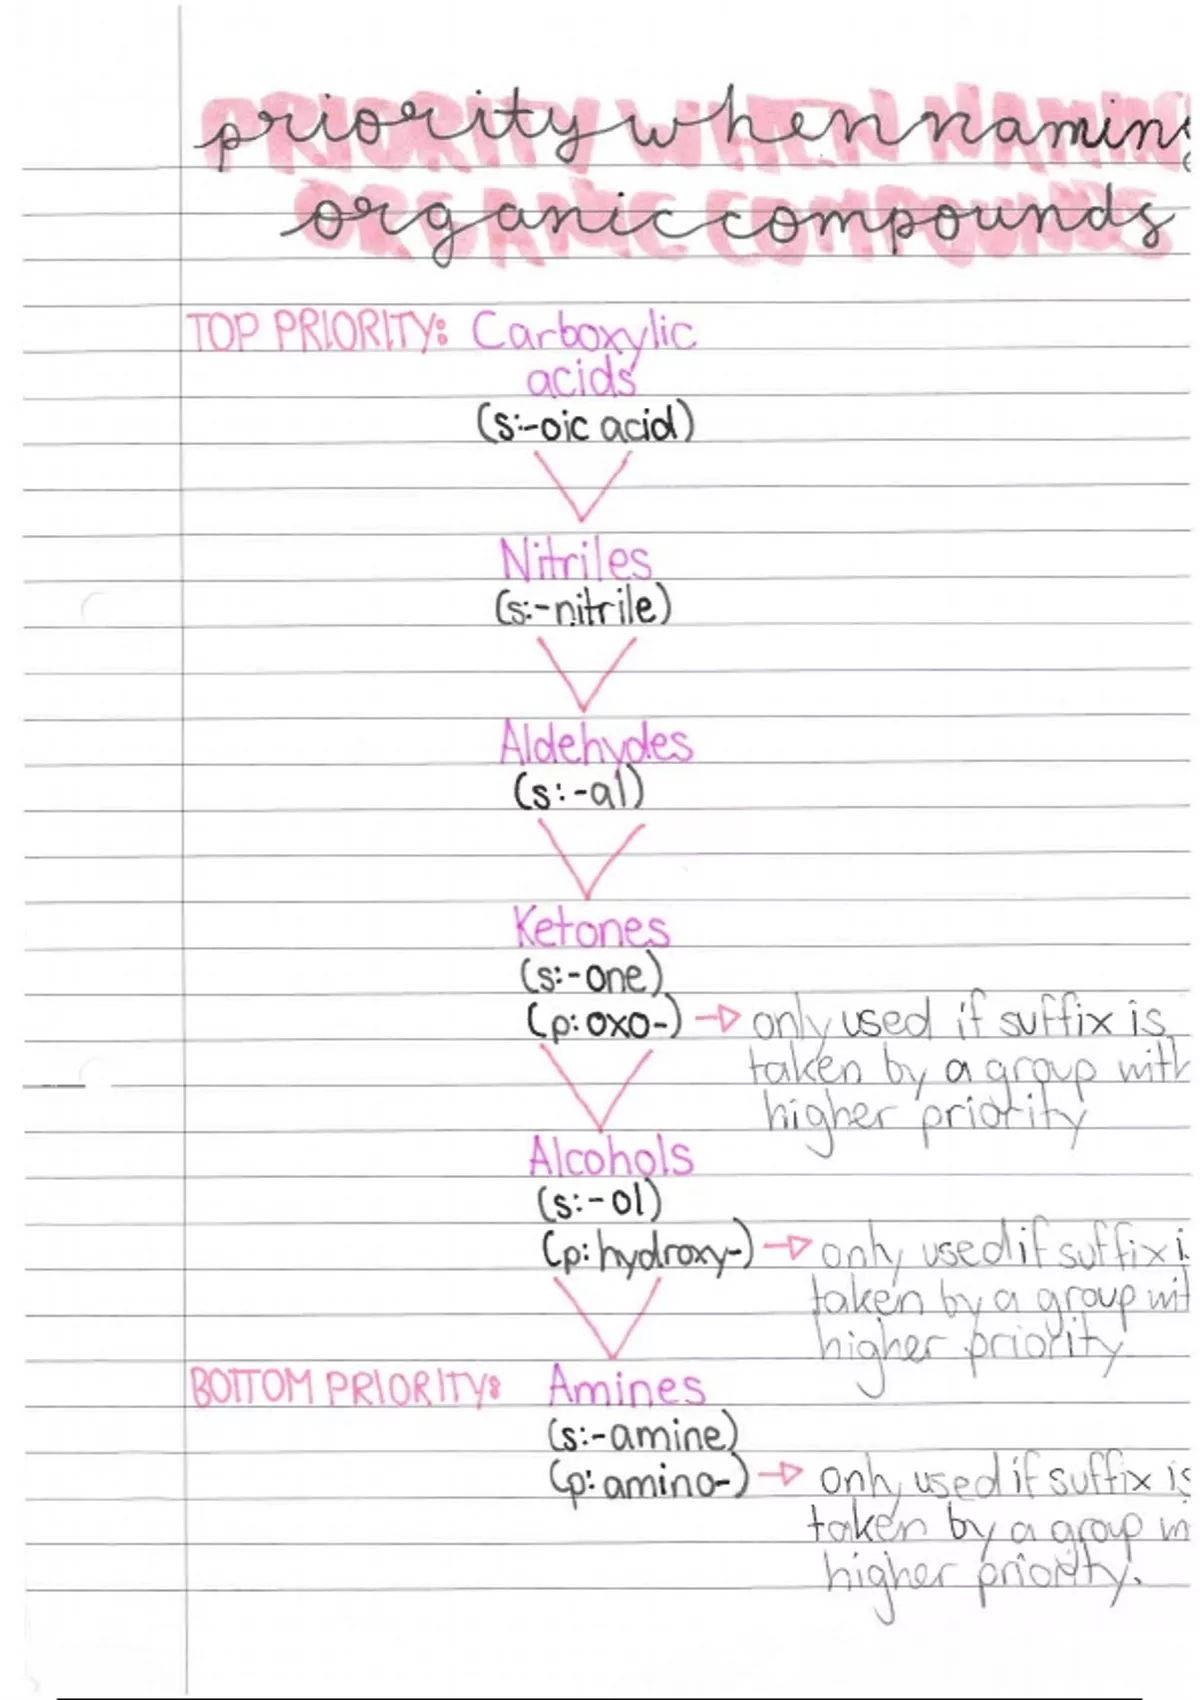 priority when naming
organic compounds
TOP PRIORITY: Carboxylic
acids
(s:-oic acid)
Nitriles
(s:-nitrile)
Aldehydes
(s:-al)
Ketones
(s:-one)
(p:oxo-) → only used if suffix is
taken by a group with
higher priority
Alcohols
(s:-ol)
(p:hydroxy-) → only used if suffix i
taken by a group wit
higher priority
BOTTOM PRIORITY: Amines
(s:-amine)
(p:amino-) → only used if suffix is
taken by a group
higher priority.